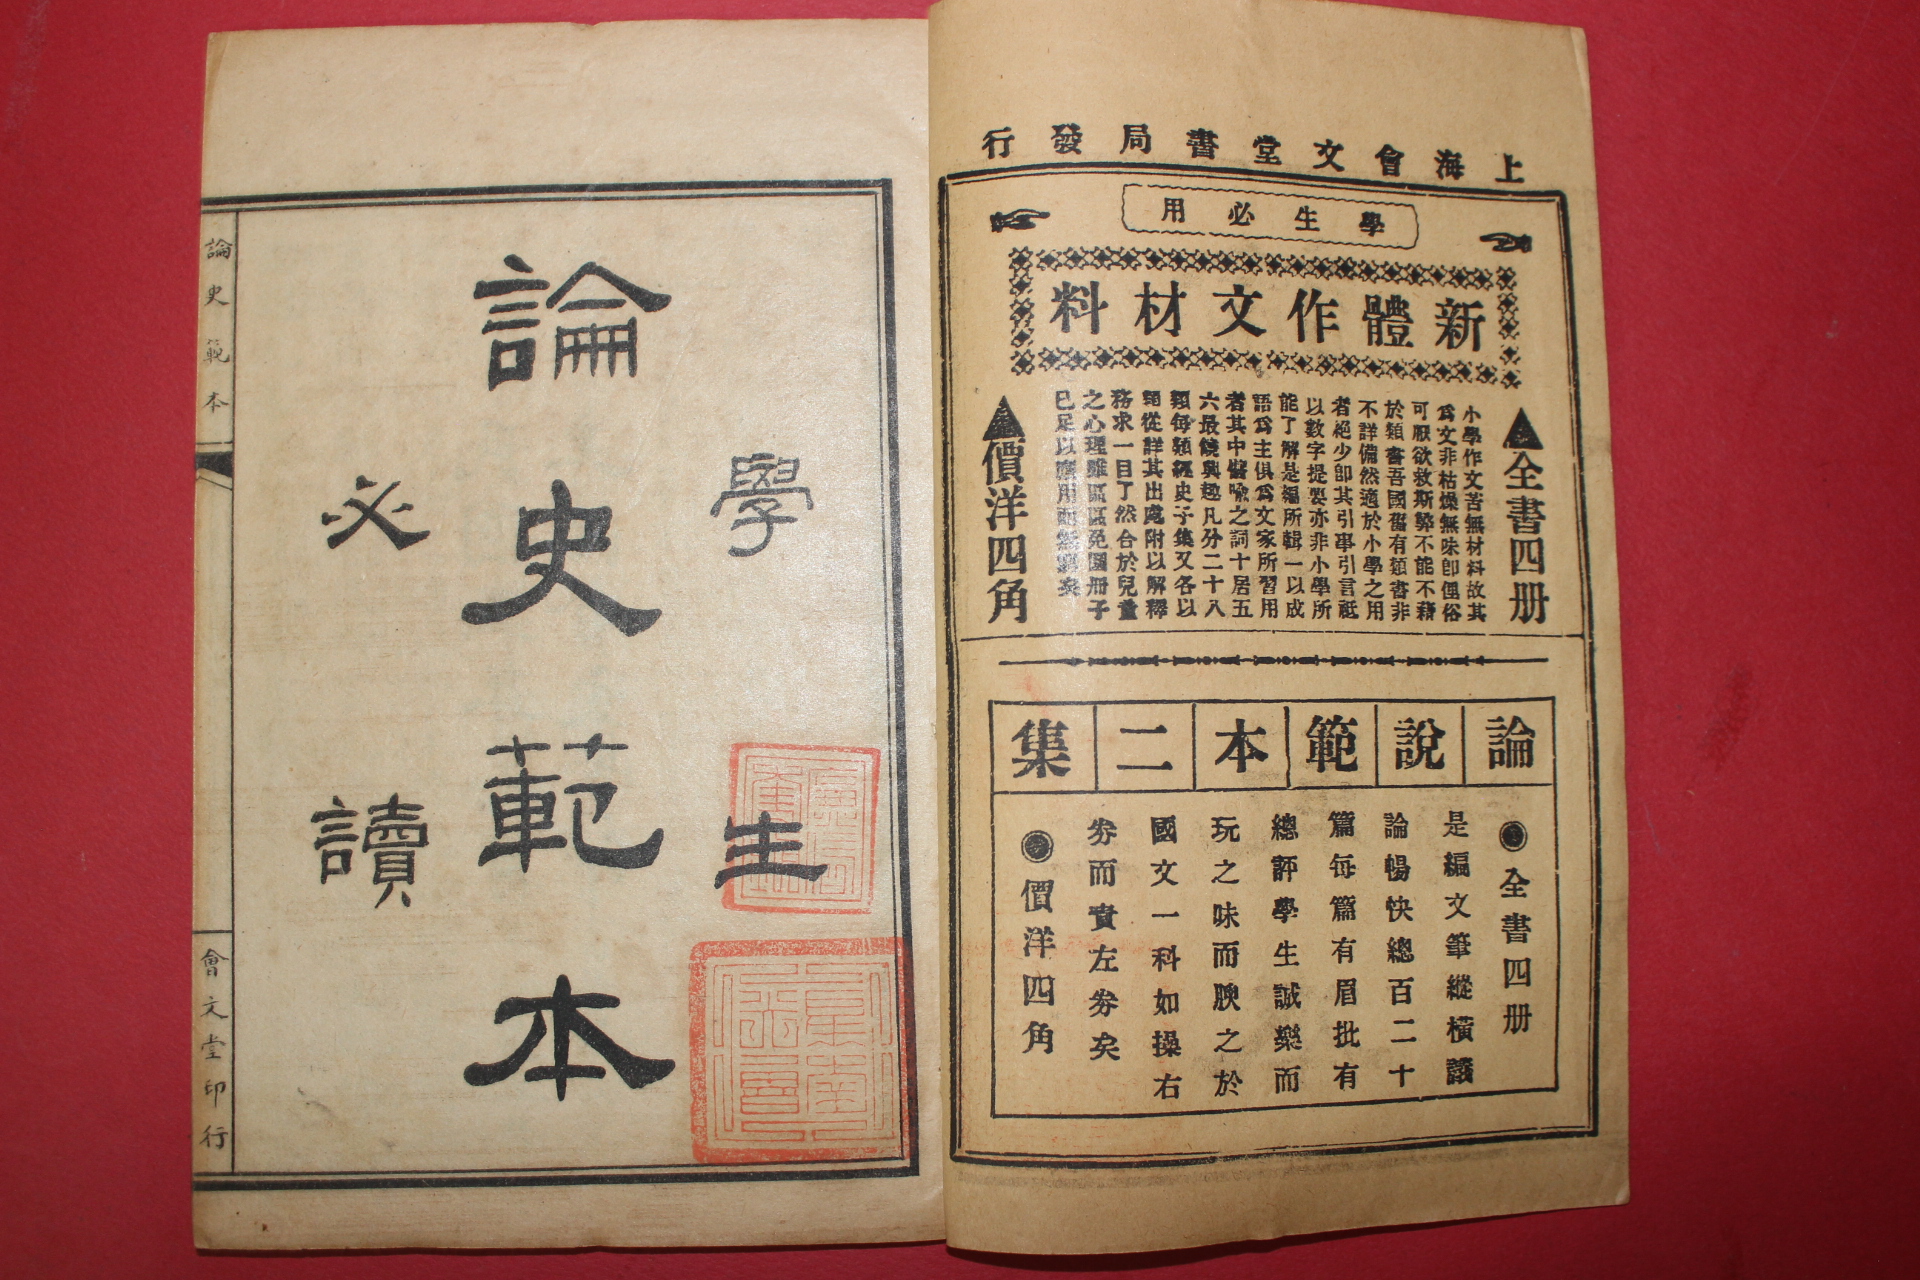 上海會文堂書局發行
學生必用
新體作文材料
全書四册
小學作文苦無材料故其
爲文非枯燥無味卽俚俗
可厭欲救斯弊不能不藉
於類書吾國舊有類書非
不詳備然適於小學之用
者絕少卽其引事引言祗
以數字提要亦非小學所
能了解是編所輯一以成
語爲主俱爲文家所習用
者其中譬喩之詞十居五
六最饒興趣凡分二十八
類每類經史子集又各以
類從詳其出處附以解釋
務求一目了然合於兒童
之心理雖區區兔園册子
已足以應用而無窮矣
價洋四角
論說範本二集
全書四册
是編文筆縱橫議
論暢快總百二十
篇每篇有眉批有
總評學生誠樂而
玩之味而腴之於
國文一科如操右
券而責左券矣
價洋四角
學生
論史範本
必讀
論史範本
會文堂印行